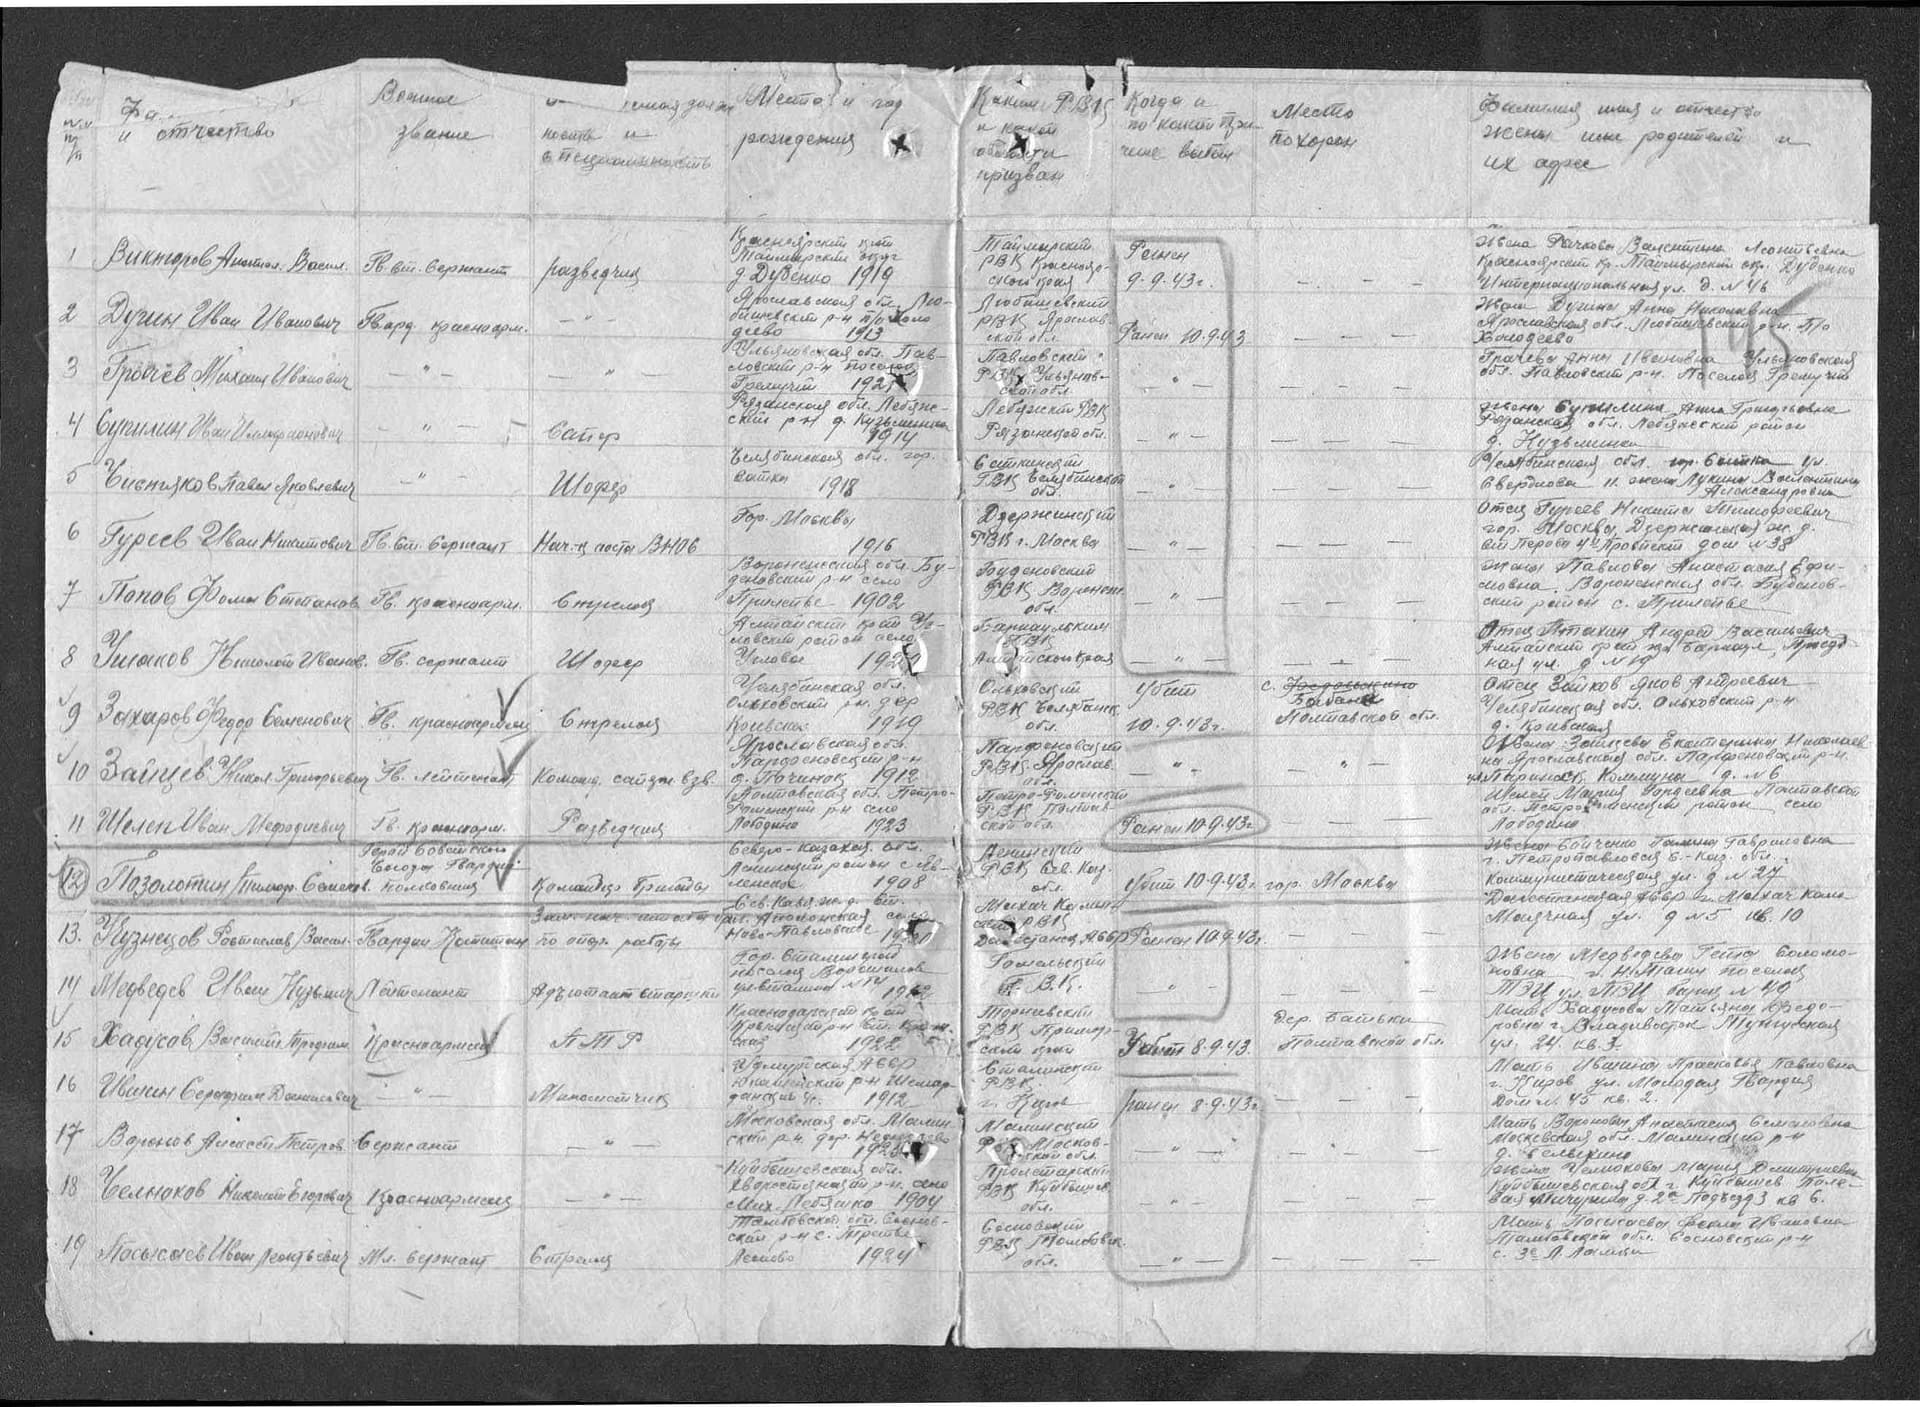 №№ п/п
Фа
и отчество
Военное
звание
ность и
специальность
Место и год
рождения
Каким РВК
и какой
области
призван
Когда и
по какой при-
чине выбыл
Место
похорон
Фамилия имя и отчество
жены или родителей и
их адрес
1
Викторов Анатол. Васил.
Гв. ст. сержант
разведчик
Красноярский край
Таймырский округ
д. Дубенко 1919
Таймырский
РВК Красноя-
рского края
Ранен
9.9.43г.
Жена Рачкова Валентина Леонтьевна
Красноярский кр. Таймырский окр. Дубенко
Интернациональная ул. д. N 46
2
Дугин Иван Иванович
Гвард. красноарм.
— " —
Ярославская обл. Лю-
бимский р-н п/о
1913
РВК Ярослав-
ской обл.
Ранен 10.9.43
Жена Дугина Анна Николаевна
Ярославская обл. р-н. п/о
3
Грачёв Михаил Иванович
— " —
— " —
Ульяновская обл. Пав-
ловский р-н поселок
Гремучий 1921
Павловский
РВК Ульянов-
ской обл.
— " —
Грачева Анна Ивановна Ульяновская
обл. Павловский р-н. Поселок Гремучий
4
Сукилин Иван Илларионович
— " —
Сапер
Рязанская обл. Лебяж-
ский р-н д. Кузьминка
1914
Лебяжский РВК
Рязанской обл.
— " —
Жена Сукилина Анна Григорьевна
Рязанская обл. Лебяжский район
д. Кузьминка
5
Павел Яковлевич
— " —
Шофер
Челябинская обл. гор.
Сатка 1918
Саткинский
ГВК Челябинской
обл.
— " —
Челябинская обл. гор. Сатка ул.
Свердлова 11. жена Лукина Валентина
Александровна
6
Гуреев Иван Никитович
Гв. ст. сержант
Нач-к поста ВНОС
Гор. Москва
1916
Дзержинский
РВК г. Москва
— " —
Отец Гуреев Никита Тимофеевич
гор. Москва, Дзержинская ж.д.
ст. Перово 4й Проспект дом N 38
7
Попов Фома Степанов.
Гв. красноарм.
Стрелок
Воронежская обл. Бу-
деновский р-н село
1902
Буденовский
РВК Воронеж.
обл.
— " —
Жена Павлова Анастасия Ефи-
мовна. Воронежская обл. Буденов-
ский район с.
8
Ушаков Николай Иванов.
Гв. сержант
Шофер
Алтайский край Уг-
ловский район село
Угловое
Барнаульским
ГВК
Алтайского края
— " —
Отец Птахин Андрей Васильевич
Алтайский край гор. Барнаул,
ная ул. д N 19
9
Захаров Федор Семенович
Гв. красноармеец
Стрелок
Челябинская обл.
Ольховский р-н. дер
Коневская 1919
Ольховский
РВК Челябинск.
обл.
Убит
10.9.43г.
с.
Полтавской обл.
Отец Зайков Яков Андреевич
Челябинская обл. Ольховский р-н
д. Коневская
10
Зайцев Никол. Григорьевич
Гв. лейтенант
Команд. сапёрн. взв.
Ярославская обл.
Парфеновский р-н
д. Починок 1912
Парфеновский
РВК Ярослав.
обл.
— " —
— " —
Жена Зайцева Екатерина Николаев-
на Ярославская обл. Парфеновский р-н.
ул. Парижск. Коммуна д. N 6
11
Шелеп Иван Мефодиевич
Гв. красноарм.
Разведчик
Полтавская обл. Петро-
Роменский р-н село
Лободино 1923
Петро-Роменский
РВК Полтав-
ской обл.
Ранен 10.9.43г.
Шелеп Мария Гордеевна Полтавской
обл. Петро-Роменский район село
Лободино
12
Позолотин Тимоф. Семенов.
Герой Советского
Союза Гвардии
полковник
Командир Бригады
Северо-Казахск. обл.
Ленинский район с. Яв-
ленское 1908
Ленинский
РВК Сев. Каз.
обл.
Убит 10.9.43г.
гор. Москва
Жена Бойченко Галина Гавриловна
г. Петропавловск С.-Каз. обл.
Коммунистическая ул. д N 27
13.
Кузнецов Ростислав Васил.
Гвардии Капитан
Зам. нач. штаба бр.
по опер. работы
Сев. Кавк. ж.д. ст.
Аполонская село
Ново-Павловское
Махач Калин-
ский РВК
Дагестанск. АССР
Ранен 10.9.43г.
Дагестанская АССР г. Махач Кала
Маячная ул. д N 5 кв. 10
14
Медведев Иван Кузьмич
Лейтенант
Адъютант старший
Гор. Сталинград
поселок Ворошилов
ул. Сталина N 14
1912
Гомельский
ГВК.
— " —
Жена Медведева Рета Соломо-
новна г. Н-Тагил поселок
ТЭЦ ул. ТЭЦ барак N 40
15
Хадусов Василий Трофим.
Красноармеец
ПТР
Краснодарский край
Крымский р-н ст. Крым-
ская 1922
РВК Примор-
ский край
Убит 8.9.43.
дер. Батьки
Полтавской обл.
Мать Хадусова Татьяна Федо-
ровна г. Владивосток Тунгусская
ул. 24. кв. 3.
16
Ившин Серафим Данилович
— " —
Минометчик
Удмуртская АССР
1912
Сталинский
РВК.
г. Киров
ранен 8.9.43г.
Мать Ившина Прасковья Павловна
г. Киров ул. Молодая Гвардия
Дом N. 45 кв. 2.
17
Воронов Алексей Петров.
Сержант
— " —
Московская обл. Малин-
ский р-н. дер.
Малинский
РВК Москов-
ской обл.
— " —
Мать Воронова Анастасия Семеновна
Московская обл. Малинский р-н
д.
18
Челноков Николай Егорович
Красноармеец
— " —
Куйбышевская обл.
Хворостянский р-н. село
Мих. Лебяжко 1904
Пролетарский
РВК Куйбышев.
обл.
— " —
Жена Челнокова Мария Дмитриевна
Куйбышевская обл. г. Куйбышев Поле-
вая Мичурина д. 2а Подъезд 3 кв 6.
19
Посысаев Иван Леонтьевич
Мл. сержант
Стрелок
Тамбовской обл. Соснов-
ский р-н с. Третье
1924
Сосновский
РВК Тамбовск.
обл.
— " —
Мать Посысаева Фекла Ивановна
Тамбовской обл. Сосновский р-н
с. 3е Л. Ламки